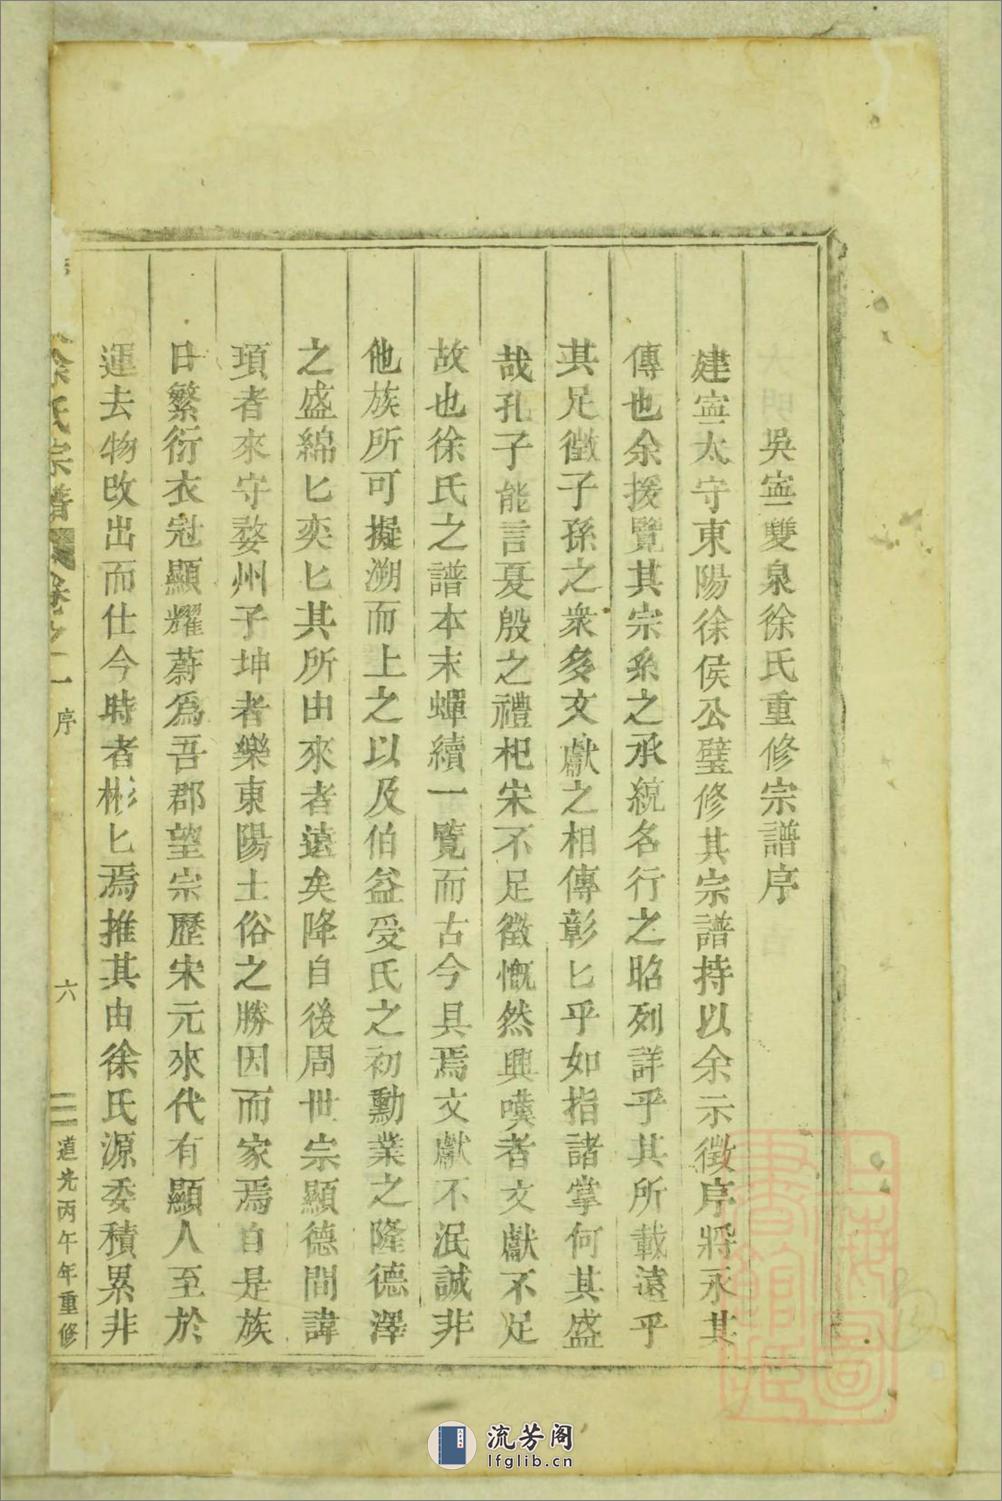 吳寍雙泉徐氏重修宗譜序
建寍太守東陽徐侯公璧修其宗譜持以余示徵序將永其
傳也余援覽其宗系之承統各行之昭列詳乎其所載遠乎
其足徵子孫之衆多文獻之相傳彰匕乎如指諸掌何其盛
哉孔子能言夏殷之禮杞宋不足徵慨然興嘆者文獻不足
故也徐氏之譜本末蟬續一覽而古今具焉文獻不泯誠非
他族所可擬溯而上之以及伯益受氏之初勳業之隆德澤
之盛綿匕奕匕其所由來者遠矣降自後周世宗顯德間諱
頊者來守婺州子坤者樂東陽土俗之勝因而家焉自是族
日繁衍衣冠顯耀蔚爲吾郡望宗歷宋元來代有顯人至於
運去物改出而仕今時者彬匕焉推其由徐氏源委積累非
徐氏宗譜 卷之一 序 六 道光丙午年重修
上海圖書館藏
流芳阁
lfglib.cn